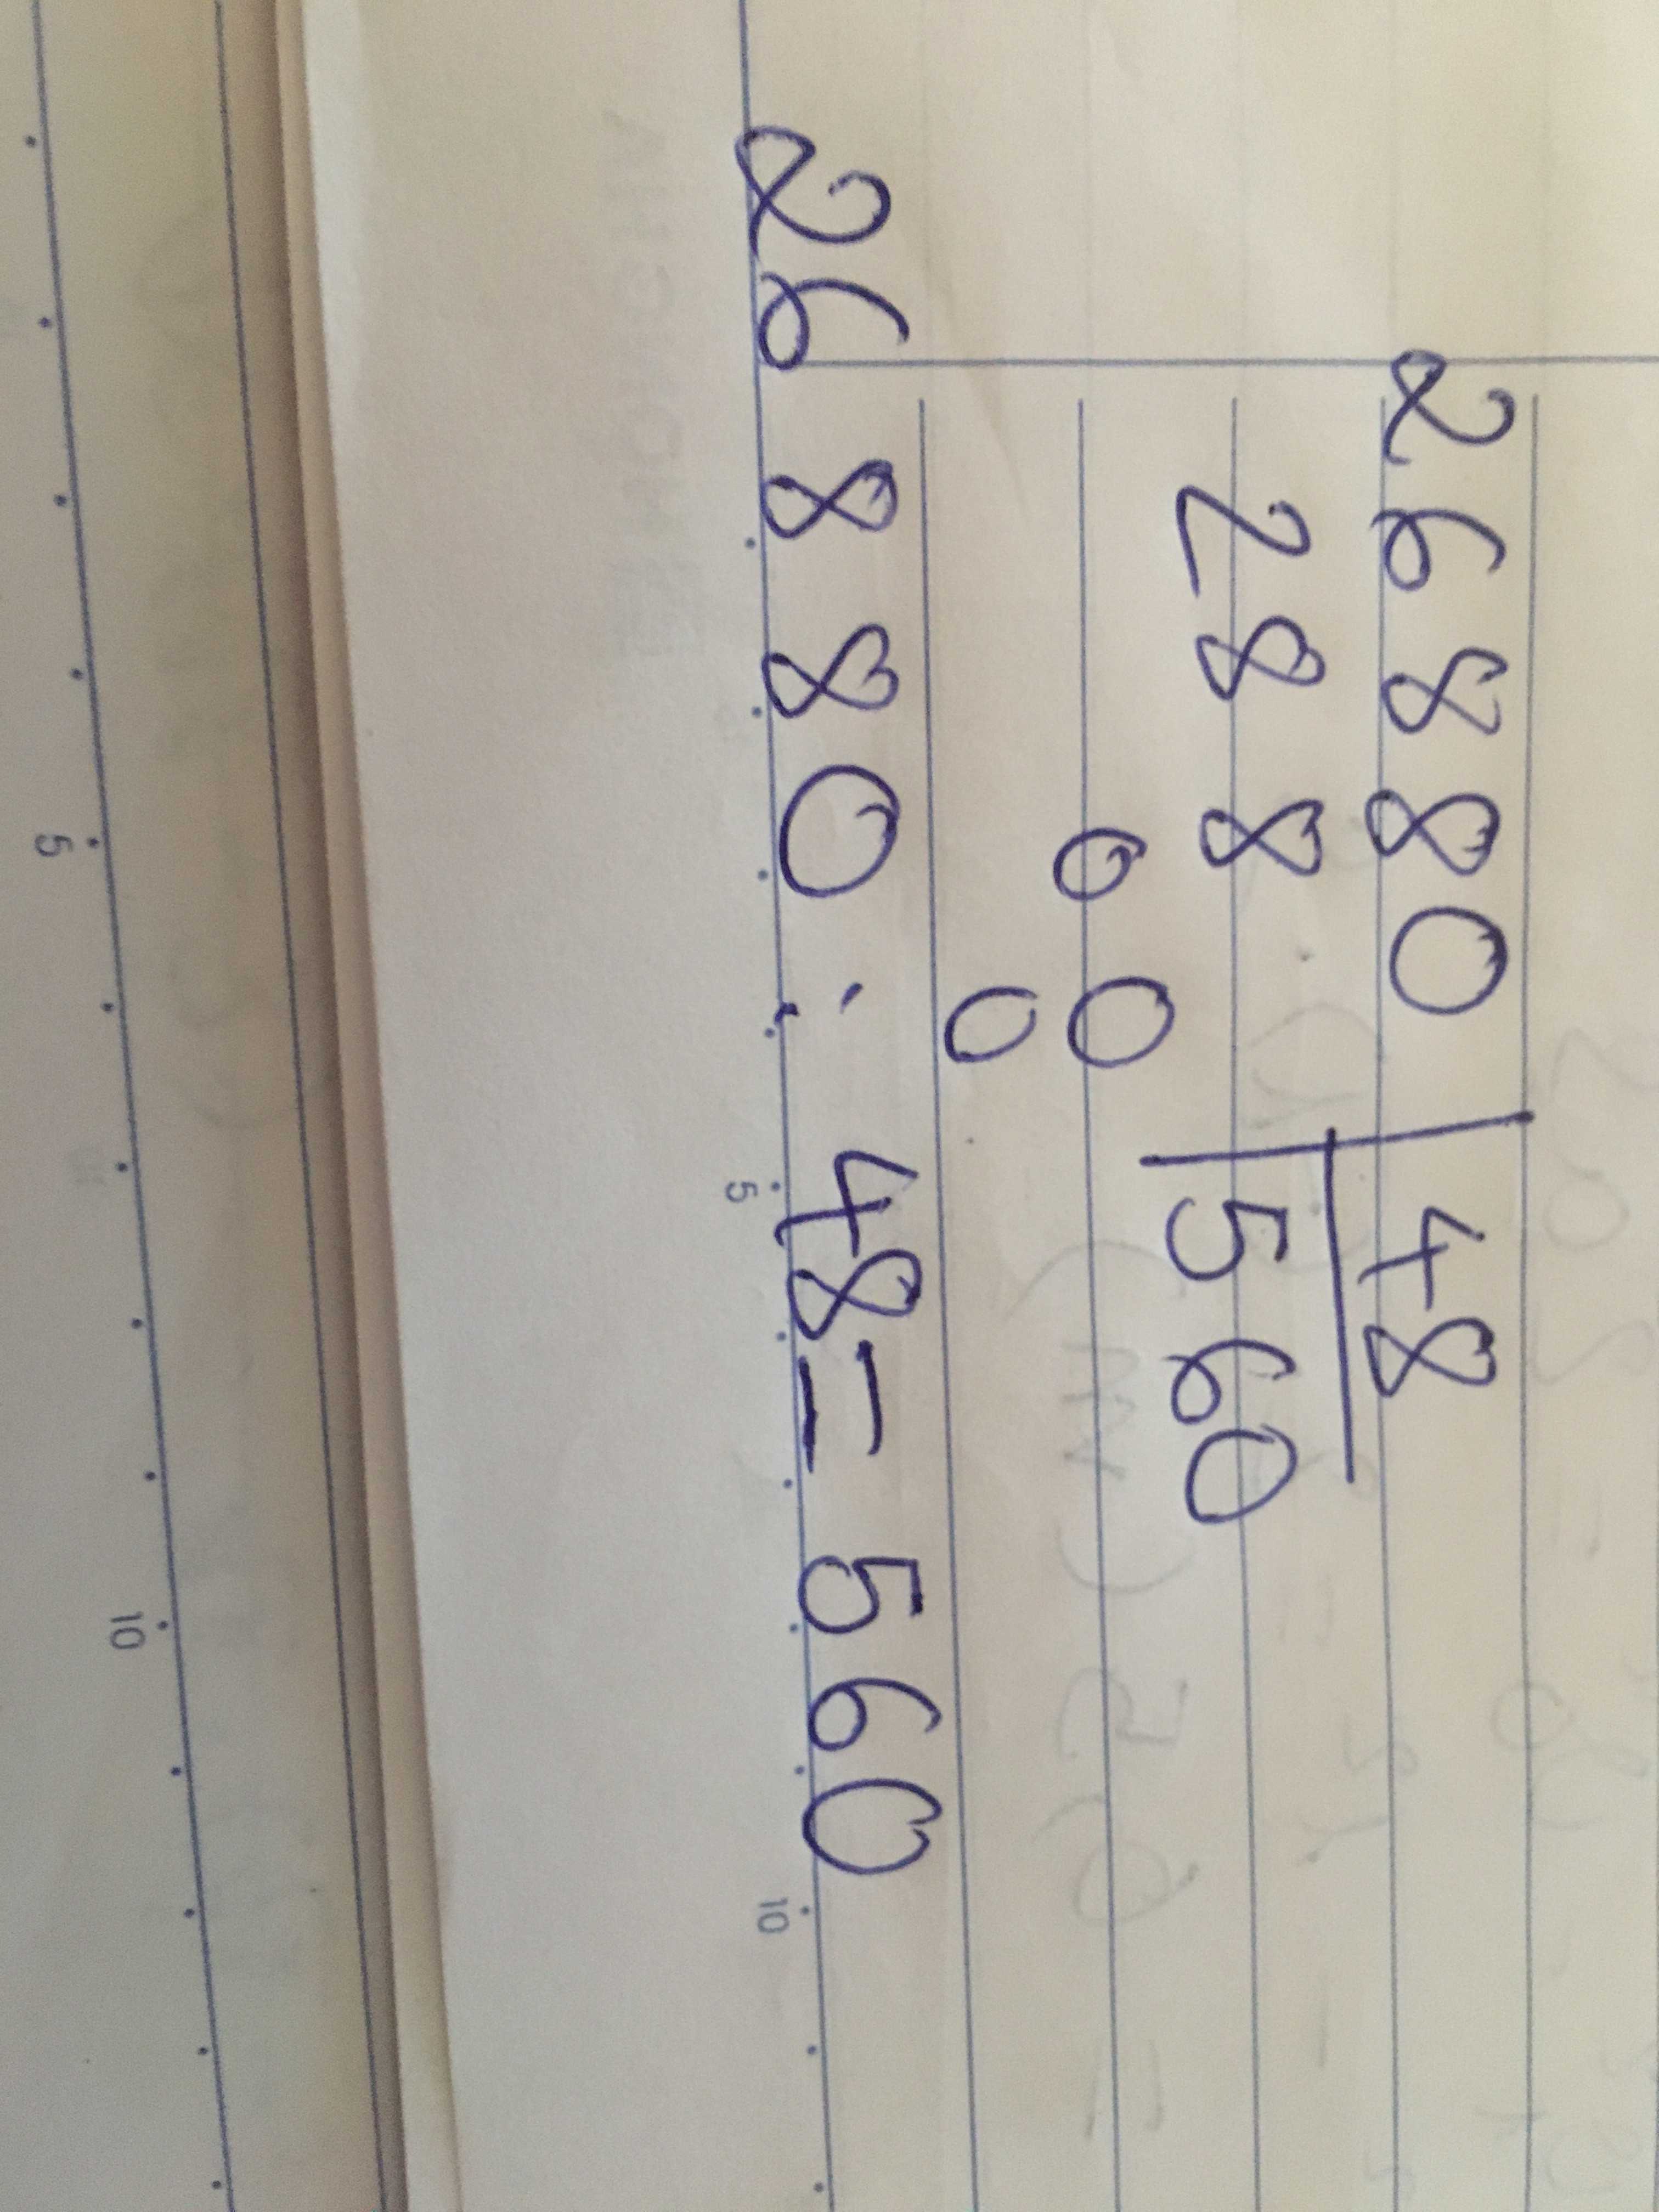 26880 | 48
288 | 560
00
0
26 880 : 48 = 560